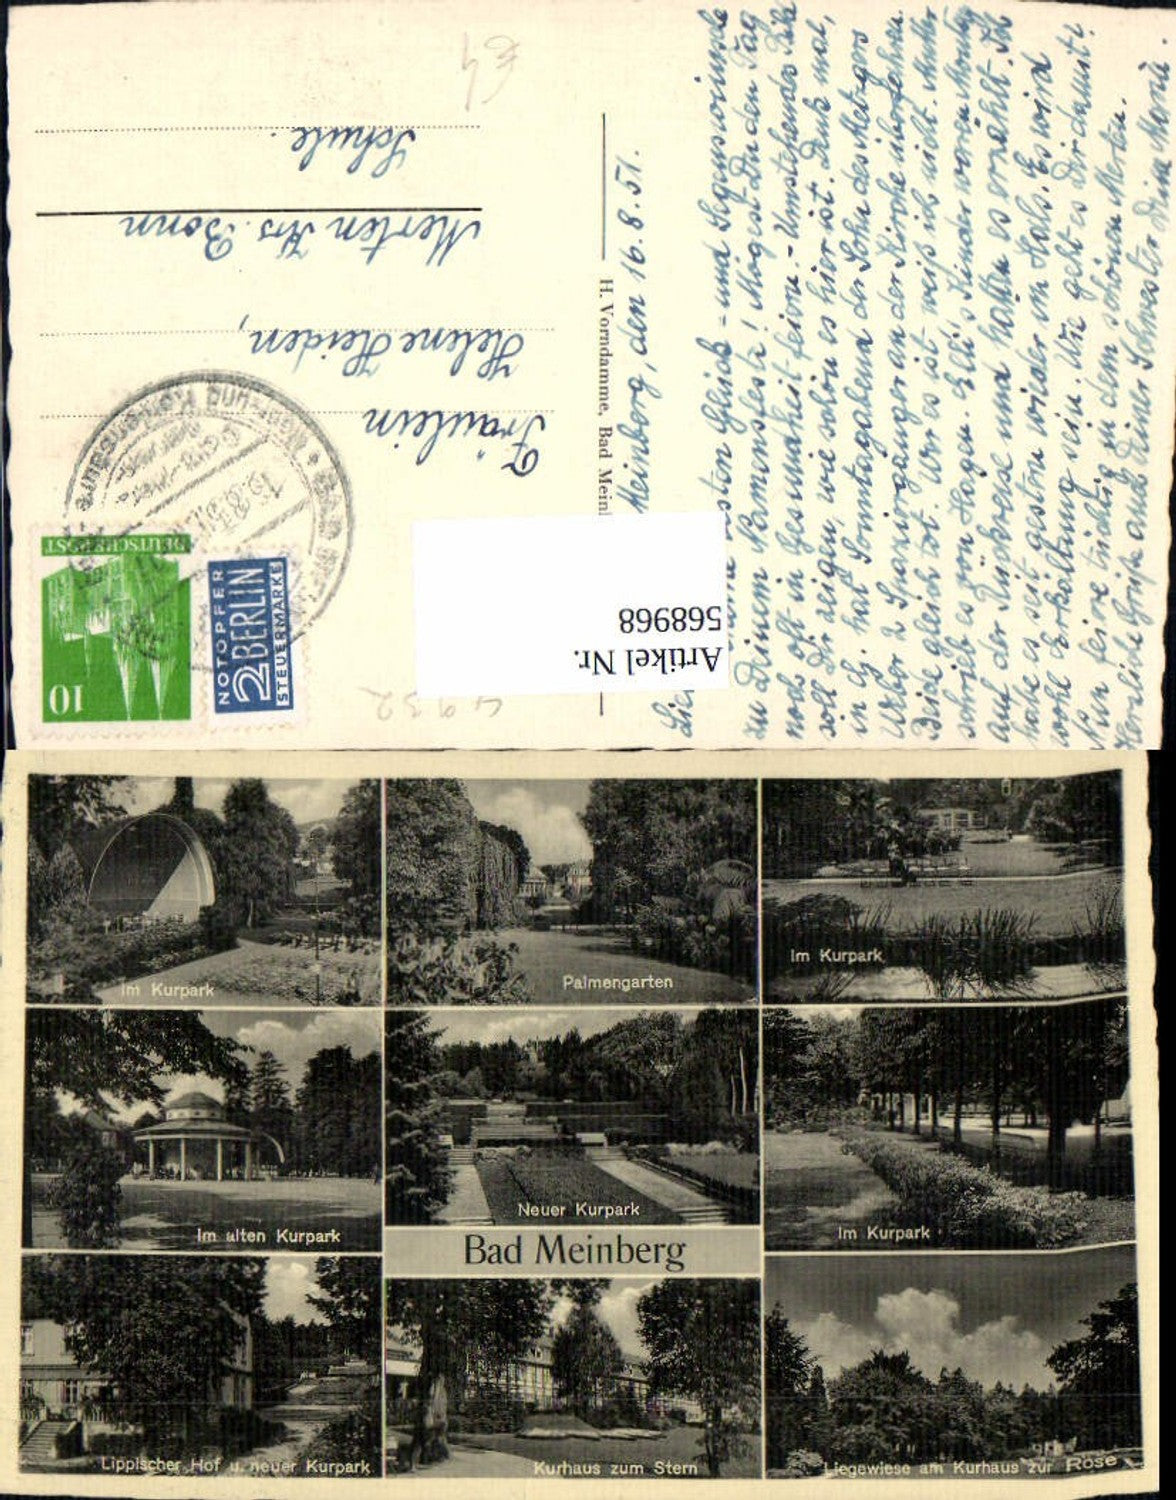 Meinberg, den 16. 8. 51.
Lie
sten Glück- und Segenswünsche
zu Deinem Namensfeste! Mögest Du den Tag
noch oft in Gesundheit feiern. - Umstehendes Bild
soll Dir zeigen, wie schön es hier ist. Denk mal,
in Hg. hat Sonntagabend der Sohn des Metzgers
Weber 2 Spaziergänger an der Kirche überfahren.
Beide gleich tot. Wer es ist weiß ich nicht. Mutter
schrieb es von Hagen. Elli's Kinder waren Montag
auf der Rückreise und hatten es erzählt. Ich
habe es seit gestern wieder im Hals. Es wird
wohl Erkältung sein. Wie geht es Dir damit?
Nun feire tüchtig in dem schönen Merten.
Herzliche Grüße auch Deiner Schwester Deine Maria.
H. Vorndamme, Bad Mein
Fräulein
Helene Heiden,
Merten Krs. Bonn
Schule.
€4
4932
Artikel Nr.
568968
16.8.51
DEUTSCHE POST
10
NOTOPFER
2 BERLIN
STEUERMARKE
Im Kurpark
Palmengarten
Im Kurpark
Im alten Kurpark
Neuer Kurpark
Im Kurpark
Bad Meinberg
Lippischer Hof u. neuer Kurpark
Kurhaus zum Stern
Liegewiese am Kurhaus zur Rose